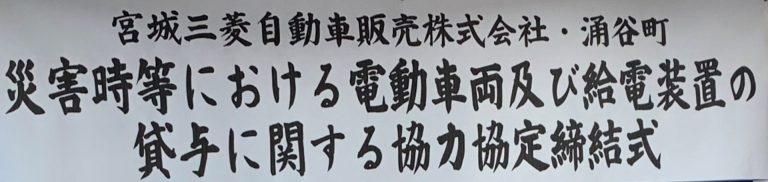 宮城三菱自動車販売株式会社・涌谷町
災害時等における電動車両及び給電装置の
貸与に関する協力協定締結式